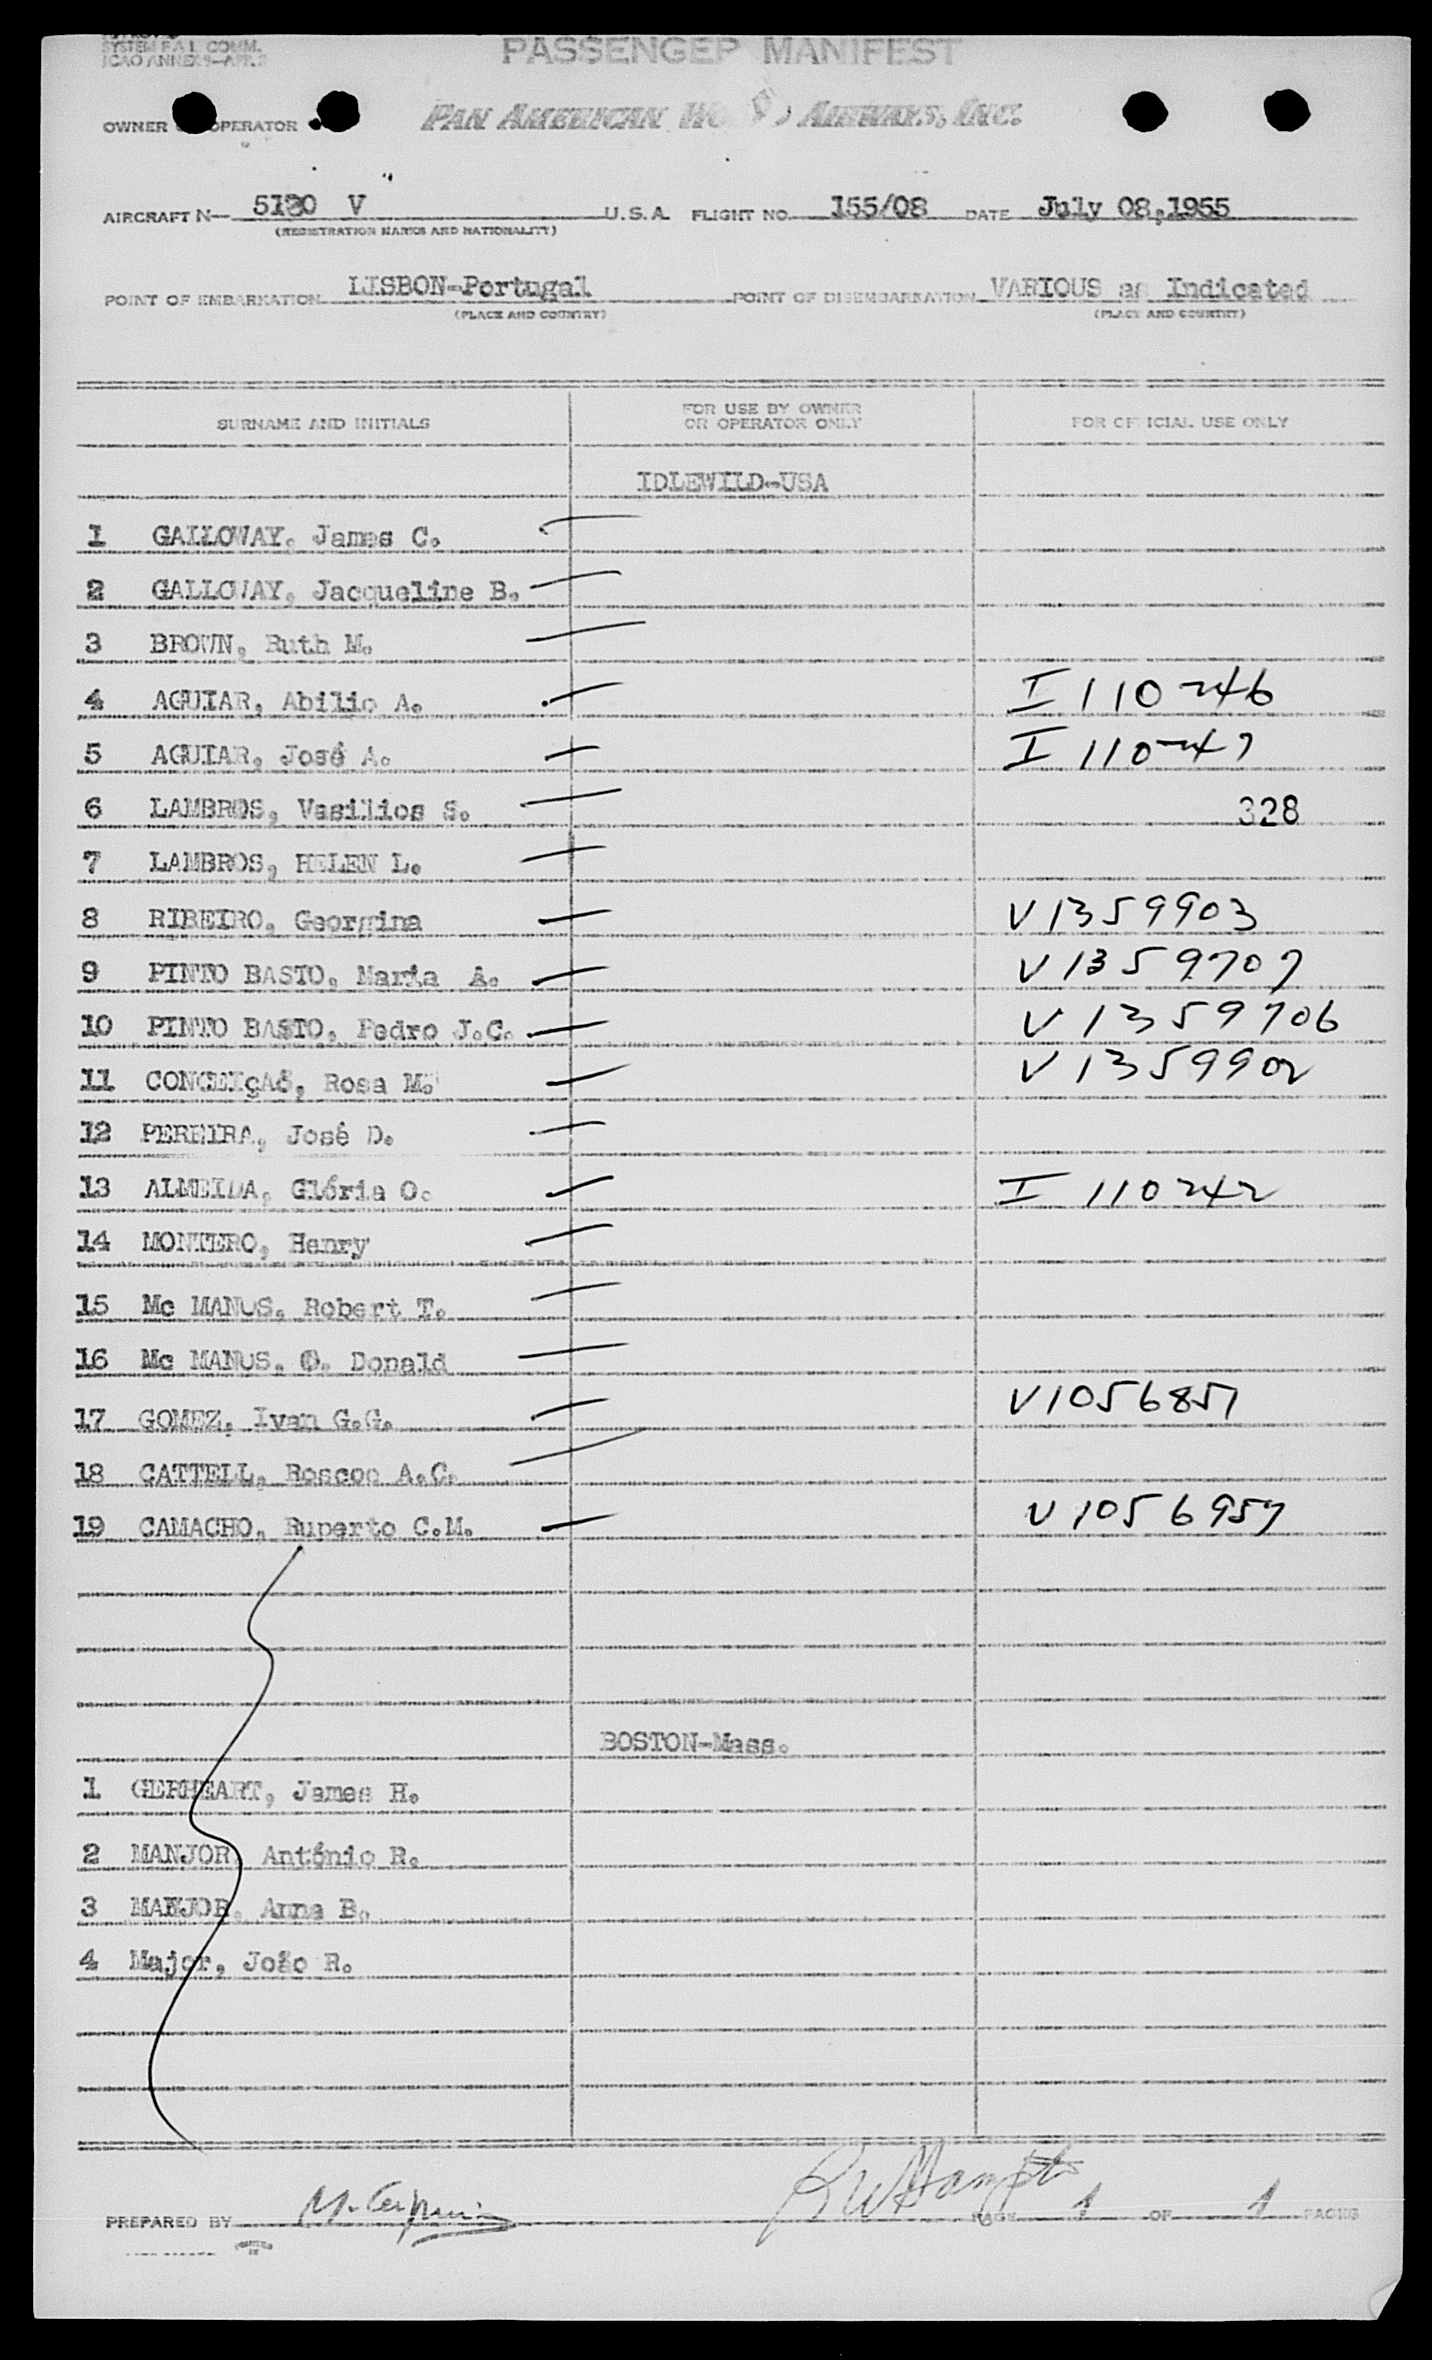 SYSTEM F.A.L. COMM.
ICAO ANNEX 9—APP. 3
PASSENGER MANIFEST
OWNER OR OPERATOR PAN AMERICAN WORLD AIRWAYS, INC.
AIRCRAFT N— 5130 V U.S.A. FLIGHT NO. 155/08 DATE July 08,1955
(REGISTRATION MARKS AND NATIONALITY)
POINT OF EMBARKATION LISBON-Portugal POINT OF DISEMBARKATION VARIOUS as Indicated
(PLACE AND COUNTRY) (PLACE AND COUNTRY)
SURNAME AND INITIALS FOR USE BY OWNER OR OPERATOR ONLY FOR OFFICIAL USE ONLY
IDLEWILD-USA
1 GALLOWAY, James C.
2 GALLOWAY, Jacqueline B.
3 BROWN, Ruth M.
4 AGUIAR, Abilio A. I 110246
5 AGUIAR, José A. I 110247
6 LAMBROS, Vasilios S. 328
7 LAMBROS, HELEN L.
8 RIBEIRO, Georgina V1359903
9 PINTO BASTO, Maria A. V1359707
10 PINTO BASTO, Pedro J.C. V1359706
11 CONCEIçAõ, Rosa M. V1359902
12 PEREIRA, José D.
13 ALMEIDA, Glória O. I 110242
14 MONTERO, Henry
15 Mc MANUS, Robert T.
16 Mc MANUS, Donald
17 GOMEZ, Ivan G.G. V1056857
18 CATTELL, Roscoe A.C.
19 CAMACHO, Ruperto C.M. V1056957
BOSTON-Mass.
1 GERHEART, James H.
2 MANJOR, António R.
3 MANJOR, Anna B.
4 Major, João R.
PREPARED BY PAGE 1 OF 1 PAGES